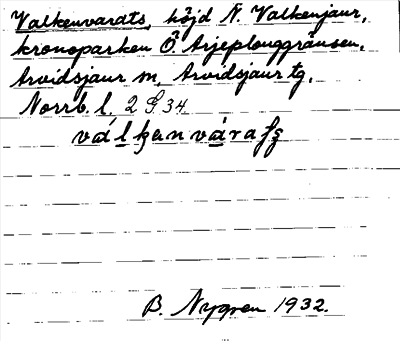 Valkenvarats, höjd N. Valkenjaur,
kronoparken Ö. Arjeplouggränsen,
Arvidsjaur m, Arvidsjaur tg.
Norrb. l. 2 G 34
B. Nygren 1932.